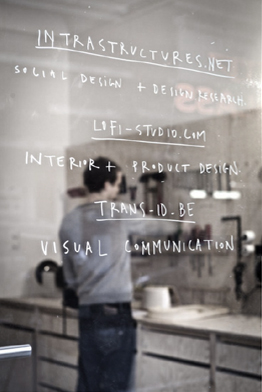 INTRASTRUCTURES.NET
SOCIAL DESIGN + DESIGN RESEARCH.
LOFI-STUDIO.COM
INTERIOR + PRODUCT DESIGN.
TRANS-ID.BE
VISUAL COMMUNICATION